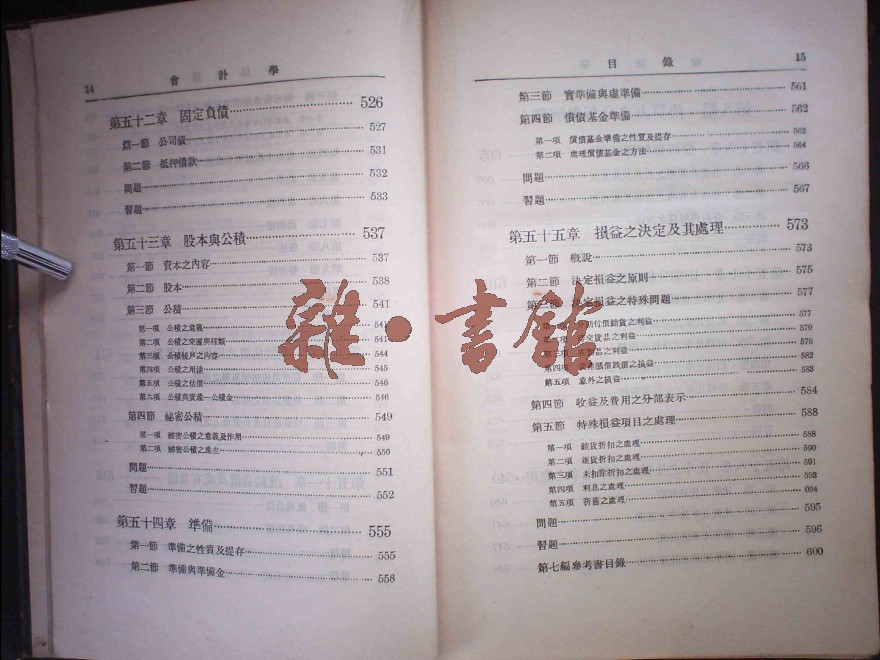 14
會計學
第五十二章 固定負債 526
第一節 公司債 527
第二節 抵押借款 531
問題 532
習題 533
第五十三章 股本與公積 537
第一節 資本之內容 537
第二節 股本 538
第三節 公積 541
第一項 公積之意義 541
第二項 公積之來源與種類 541
第三項 公積帳戶之內容 544
第四項 公積之用途 545
第五項 公積之估價 546
第六項 公積與資產—公積金 546
第四節 祕密公積 549
第一項 祕密公積之意義及作用 549
第二項 祕密公積之產生 550
問題 551
習題 552
第五十四章 準備 555
第一節 準備之性質及提存 555
第二節 準備與準備金 558
目錄
15
第三節 實準備與虛準備 561
第四節 償債基金準備 562
第一項 償債基金準備之性質及提存 562
第二項 處理償債基金之方法 564
問題 566
習題 567
第五十五章 損益之決定及其處理 573
第一節 概說 573
第二節 決定損益之原則 575
第三節 決定損益之特殊問題 577
第一項 銷貨之利益 577
第二項 貨品之利益 579
第三項 貨品之利益 579
第四項 漲價跌價之損益 582
第五項 意外之損益 583
第四節 收益及費用之分部表示 584
第五節 特殊損益項目之處理 588
第一項 銷貨折扣之處理 588
第二項 進貨折扣之處理 590
第三項 未扣除折扣之處理 591
第四項 利息之處理 593
第五項 折舊之處理 094
問題 595
習題 596
第七編參考書目錄 600
雜·書館